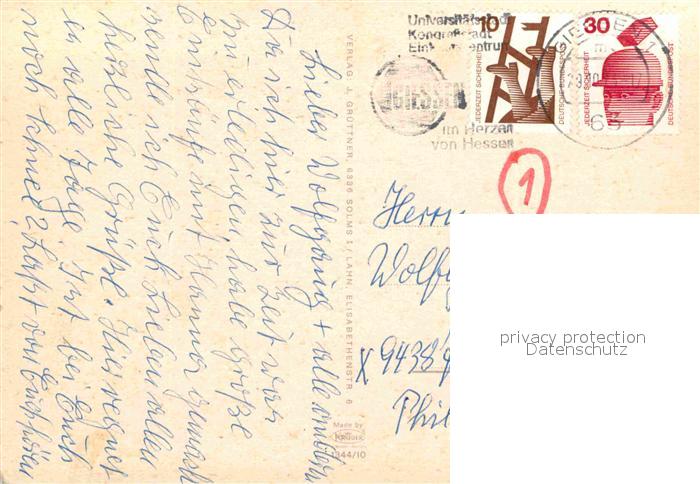 Lieber Wolfgang + alle andern
Da ich hier zur Zeit war
zu Heiligen, habe große
Einkäufe mit Hanna gemacht
wollte ich Euch Lieben allen
herzliche Grüße. Hier regnet
es alle Tage. Ist bei Euch
noch Schnee? Laßt von Euch hören
VERLAG J. GRÜTTNER, 6336 SOLMS 1 / LAHN, ELISABETHENSTR. 6
Made by
KRÜGER
1344/10
Universitätsstadt
Kongreßstadt
Einkaufszentrum
GIESSEN
im Herzen
von Hessen
10
JEDERZEIT SICHERHEIT
DEUTSCHE BUNDESPOST
30
JEDERZEIT SICHERHEIT
DEUTSCHE BUNDESPOST
GIESSEN 1
63
1
Herrn
Wolfg
X 9438
Phil
privacy protection
Datenschutz